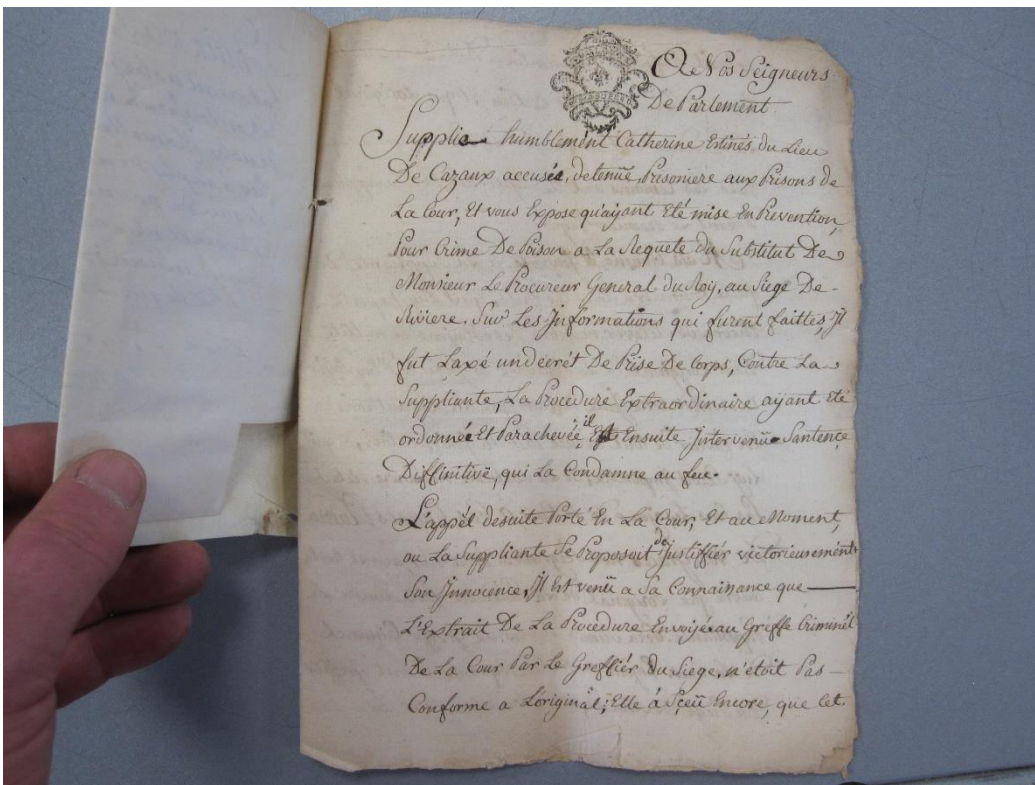 A Nos Seigneurs
De Parlement
Supplie humblement Catherine Estinés du Lieu
De Cazaux accusée, detenüe, Prisoniere aux Prisons de
La Cour, Et vous Expose qu'ayant Eté mise En Prevention,
Pour Crime De Poison a La Requete du Substitut De
Monsieur Le Procureur General du Roy, au Siege De
Riviere. Sur Les Informations qui furent faittes, Il
fut Laxé un decrét De Prise De Corps, Contre La
Suppliante, La Procedure Extraordinaire ayant Eté
ordonnée Et Parachevée, il Est Ensuite Intervenüe Santence
Diffinitivë, qui La Condamne au feu.
L'appél desuite Porté En La Cour, Et au Moment,
ou La Suppliante Se Proposoit de Justiffiér victorieusemént
Son Innocence, Il Est venü a Sa Connaissance que
L'Extrait De La Procedure Envoyé au Greffe Criminél
De La Cour Par Le Greffiér du Siege, n'etoit Pas
Conforme a Loriginal; Elle á Sçeü Encore, que Cet